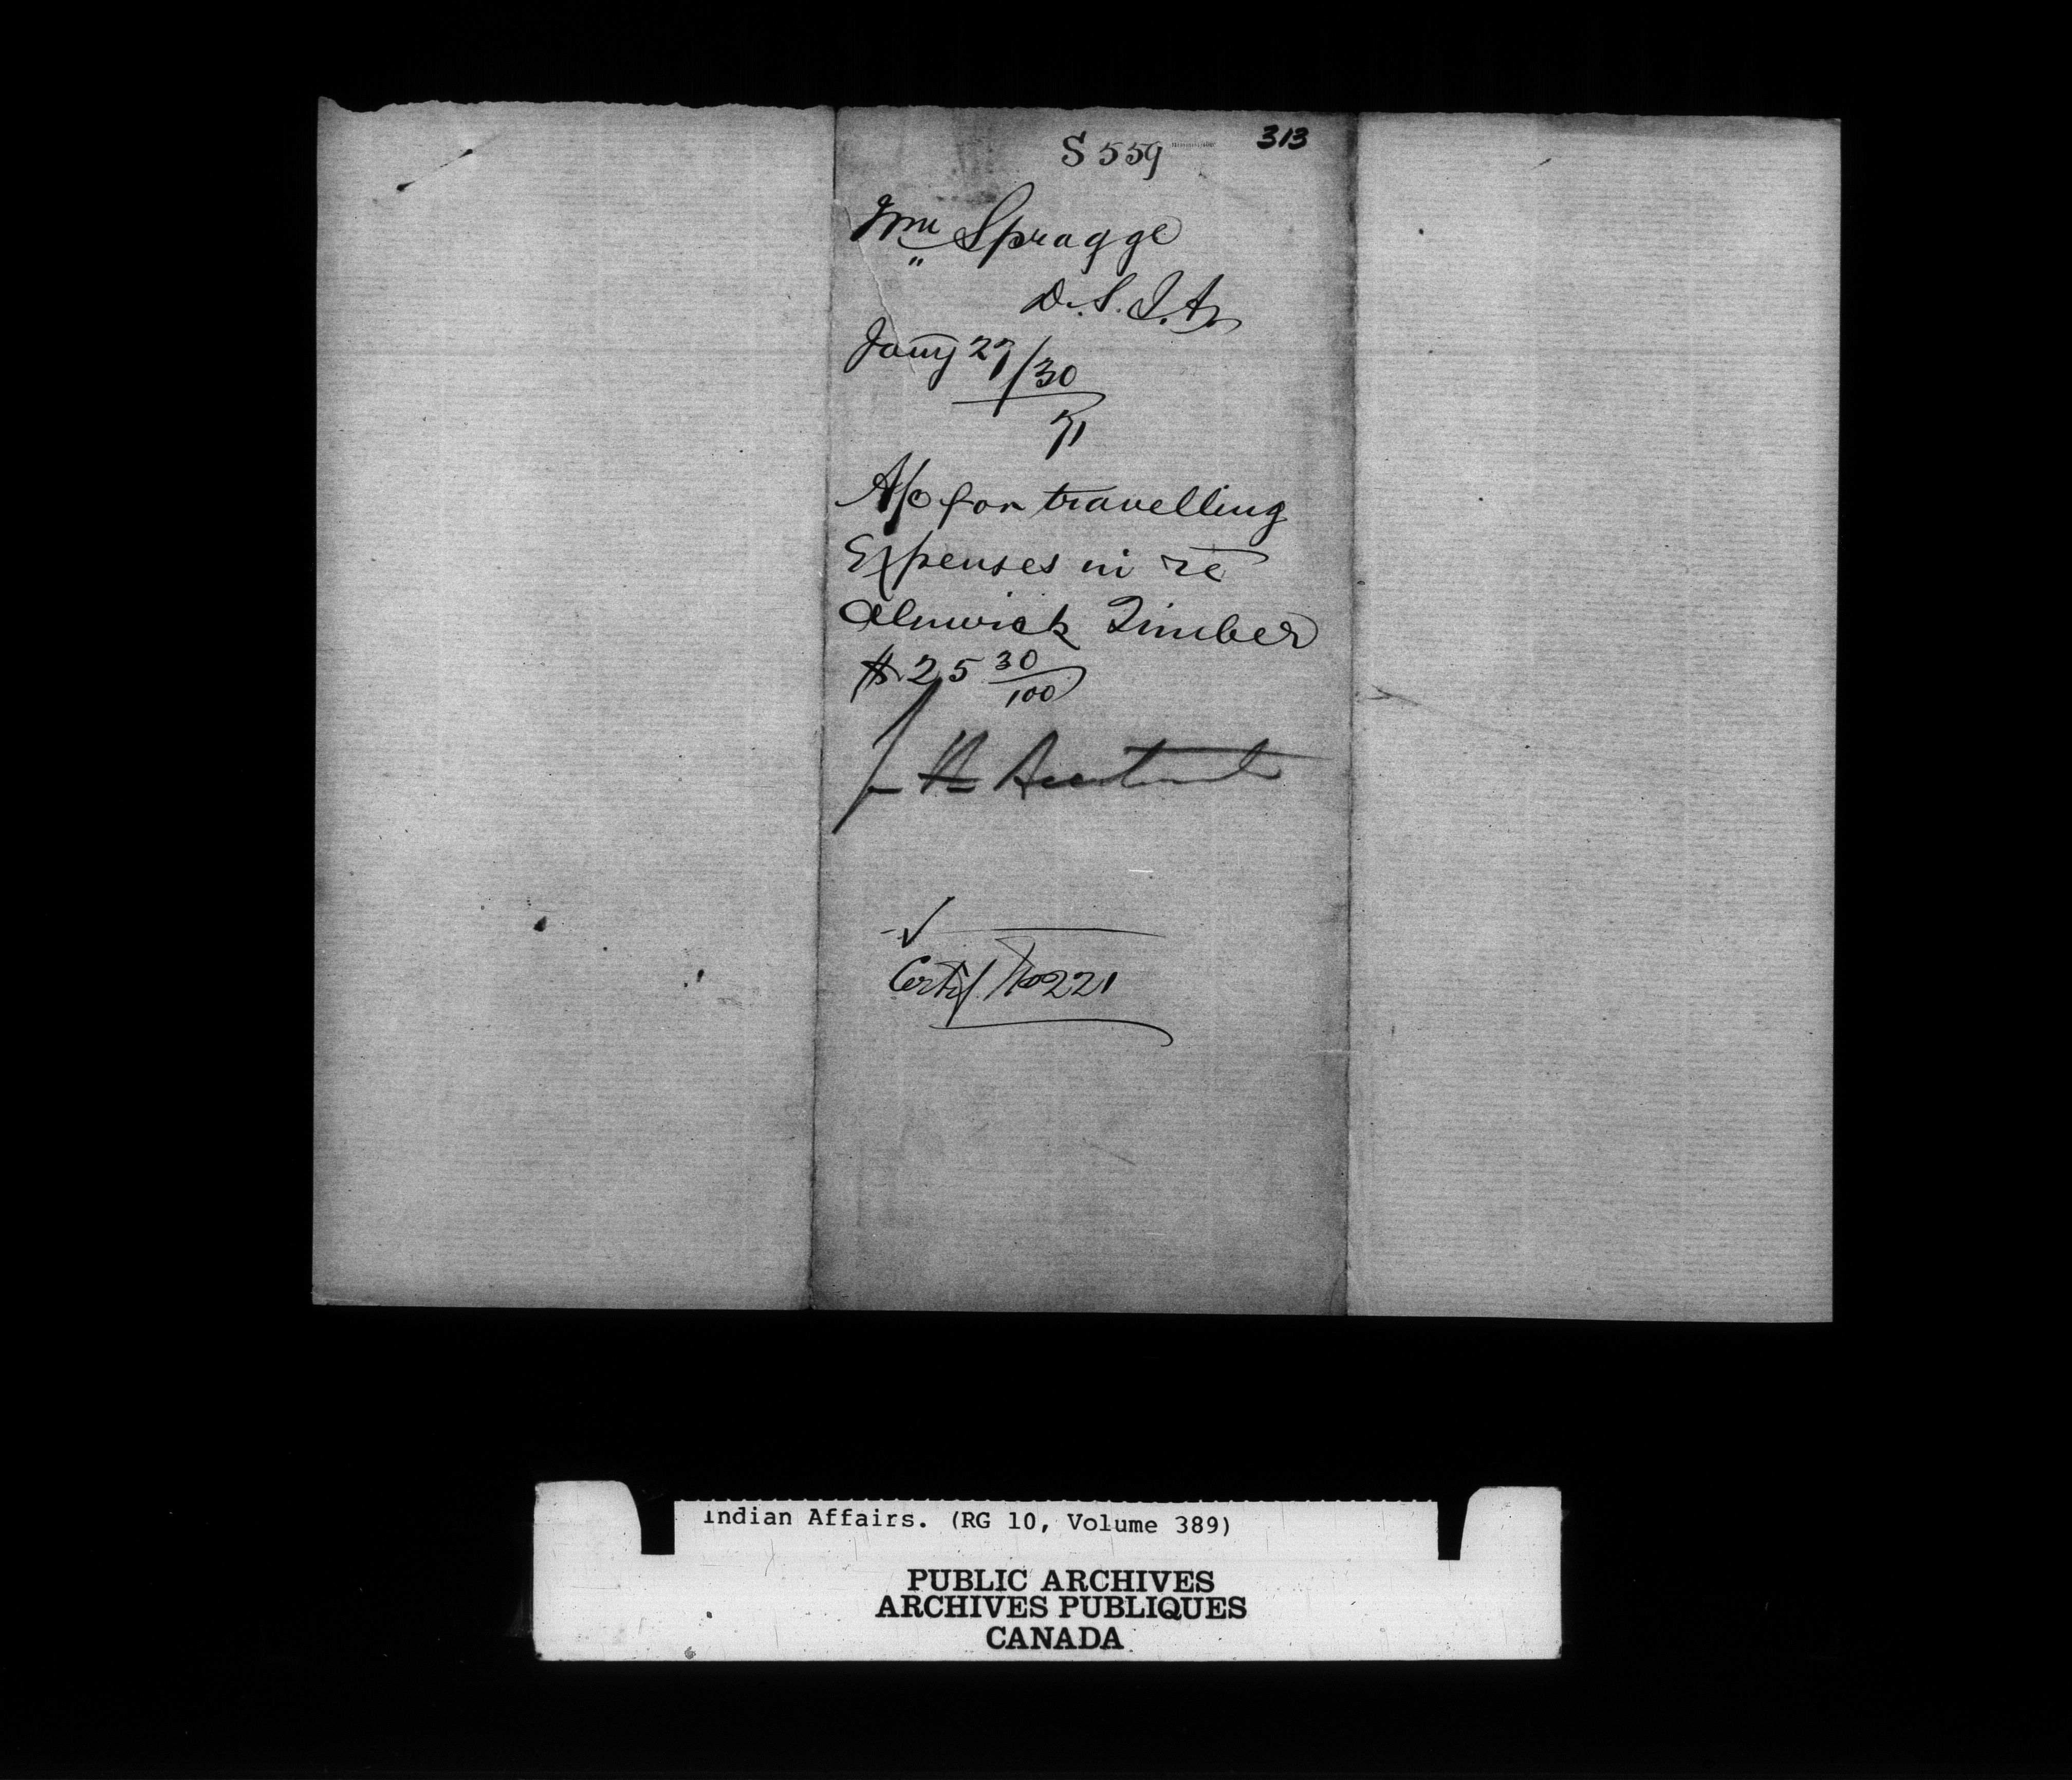 313
S 559
Wm Spragge
D. S. I. A.
Jany 27/30
71
A/c for travelling
Expenses in re
Alnwick Timber
$ 25 30/100
for the Accountant
Certif. No 221
Indian Affairs. (RG 10, Volume 389)
PUBLIC ARCHIVES
ARCHIVES PUBLIQUES
CANADA